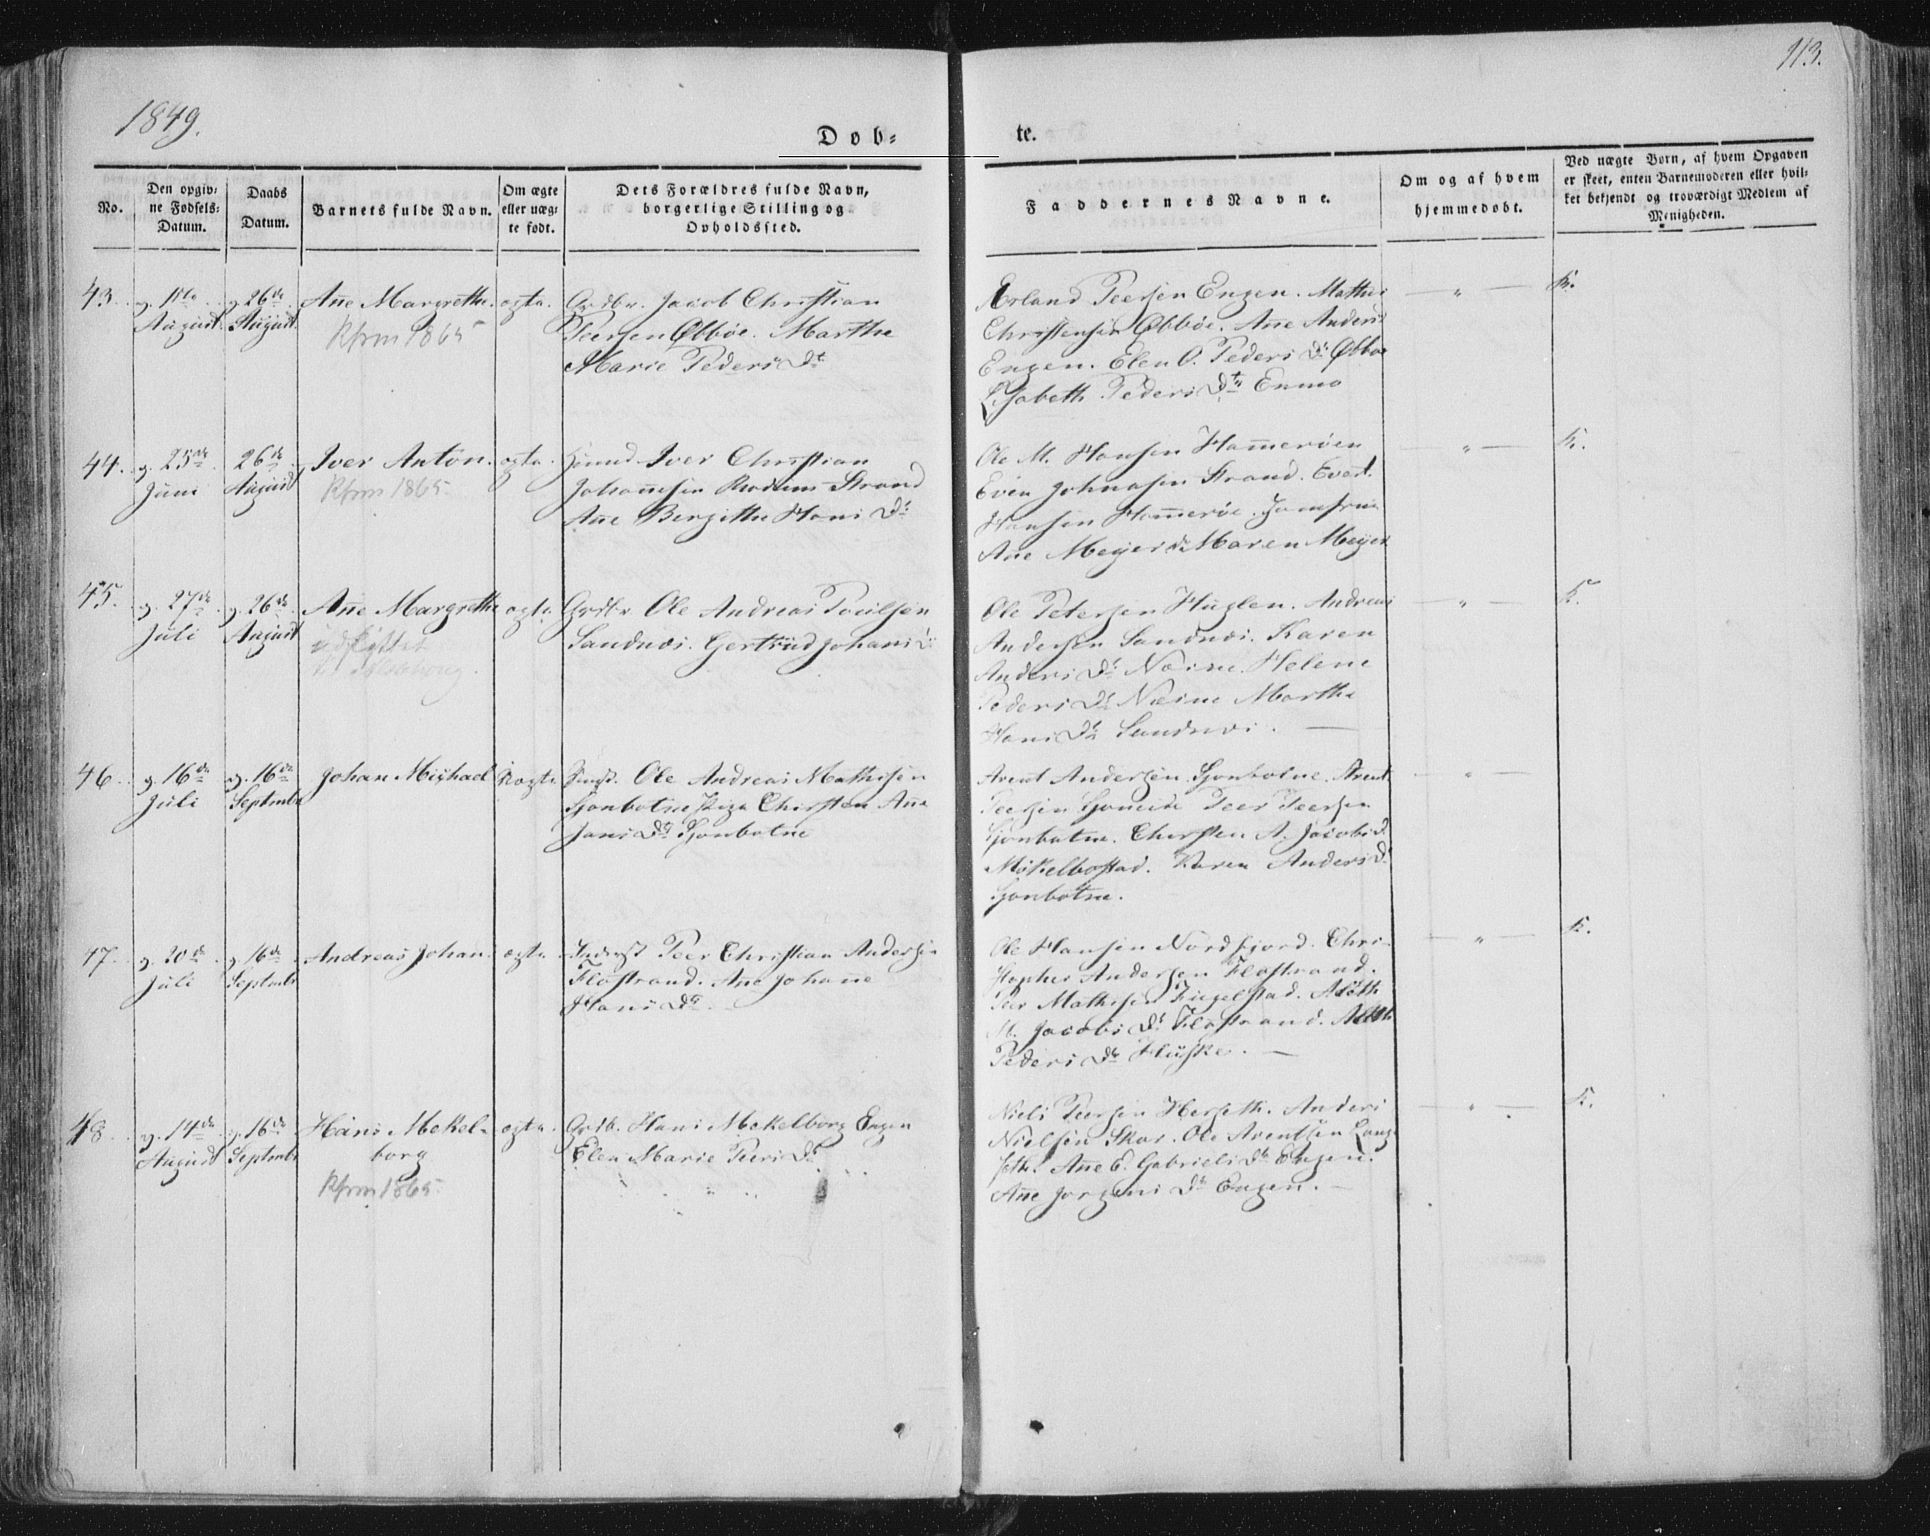 1849.
113.
Døb=
te.
No.
Den opgiv=
ne Fødsels=
Datum.
Daabs
Datum.
Barnets fulde Navn.
Om ægte
eller uæg=
te født.
Dets Forældres fulde Navn,
borgerlige Stilling og
Opholdssted.
Faddernes Navne.
Om og af hvem
hjemmedøbt.
Ved uægte Børn, af hvem Opgaven
er skeet, enten Barnemoderen eller hvil=
ket bekjendt og troværdigt Medlem af
Menigheden.
43. 11te August 26de August Ane Margrethe. ægte.
Kfrm 1865
Grdbr. Jacob Christian
Peersen Øbbøe. Marthe
Marie Peders Dt
Erland Peersen Engen. Mathis
Christensen Øbbøe. Ane Anders
Engen. Elen O. Peders Dt Øbbøe
Lisabeth Peders Dtr Enmo
K.
44. 25de Juni 26de August Iver Anton. ægte.
Kfrm 1865.
Iver Christian
Johannesen Strand
Ane Bergithe Hans Dt
Ole M. Hansen Hammerøen
Even Johnasen Strand. Evert
Hansen Hammerøe. Jomfrue
Ane Meyer Maren Meyer
K.
45. 27de Juli 26de August Ane Margrethe ægte.
udflyttet
Grdbr Ole Andreas Poulsen
Sandnæs. Gertrud Johans Dt
Ole Petersen Huglen. Andreas
Andersen Sandnæs. Karen
Anders Dt Næsne. Helene
Peders Dt Næsne Marthe
Hans Dt Sandnæs.
K.
46. 16de Juli 16de Septmbr Johan Michael uægte
Ole Andreas Mathisen
Sjonbotne Pige Chirsten Ane
Jans Dt Sjonbotne
Arent Andersen Sjonbotne. Arent
Peersen Peer Peersen
Sjonbotne. Chersten A. Jacobs D.
Mökelbostad. Karen Anders Dt
Sjonbotne.
47. 20de Juli 16de Septmbr Andreas Johan ægte.
Peer Christian Andersen
Flostrand. Ane Johanne
Hans Dt
Ole Hansen Nordfjord. Chri-
stopher Andersen Flostrand.
Peer Mathisen Fugelstad.
M. Jacobs Dt Flostrand.
Peders Dt
K.
48. 14de August 16de Septmbr Hans Mekel-
borg ægte.
Kfrm 1865.
Grdb. Hans Mekelborg Engen
Elen Marie Peers Dt
Niels Peersen Herseth. Anders
Nielsen Skar. Ole Arentsen Lang
seth. Ane E. Gabriels Dt Engen.
Ane Jørgens Dt Engen.
K.